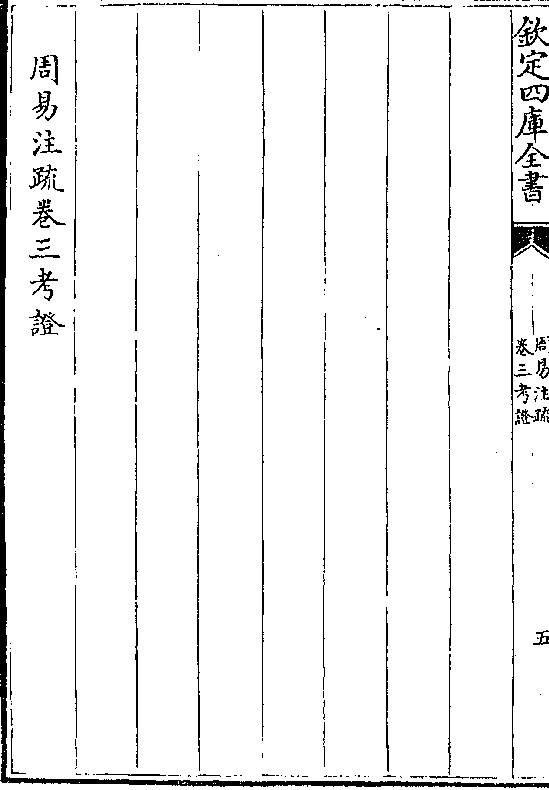 欽定四庫全書
周易注疏
卷三考證
五
周易注疏卷三考證